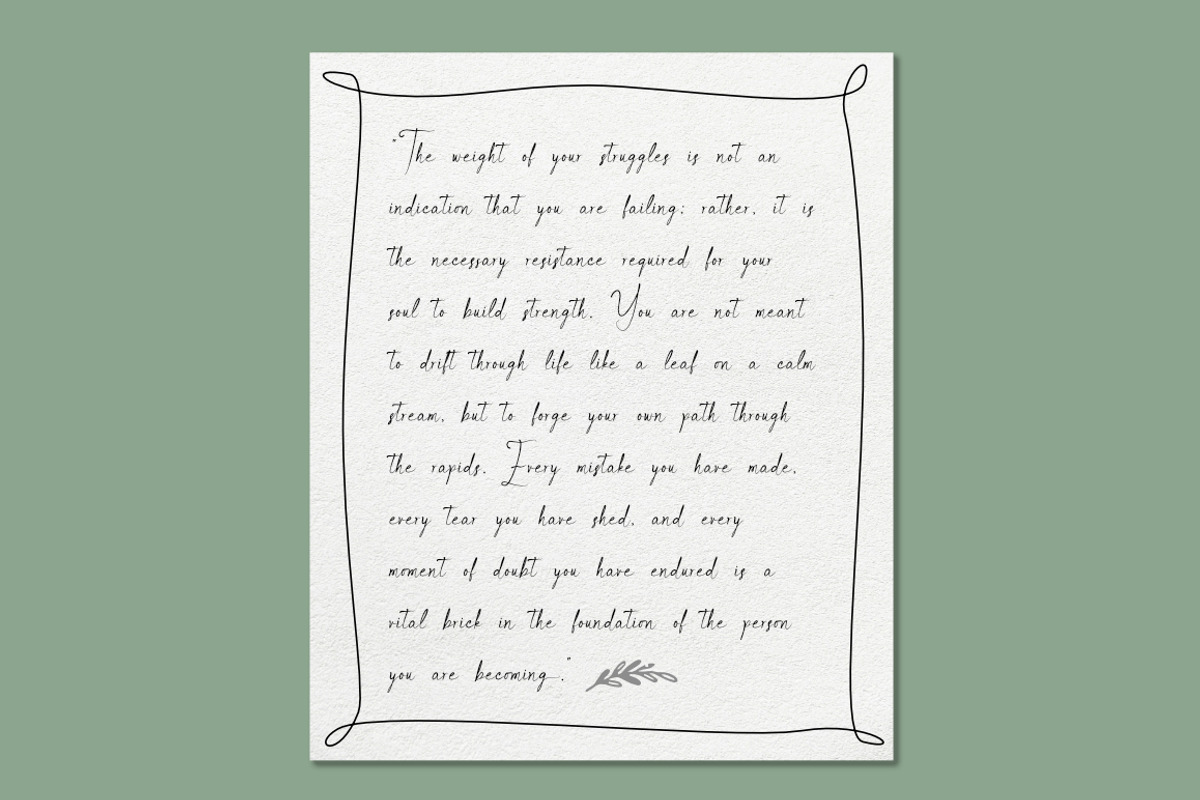 "The weight of your struggles is not an
indication that you are failing; rather, it is
the necessary resistance required for your
soul to build strength. You are not meant
to drift through life like a leaf on a calm
stream, but to forge your own path through
the rapids. Every mistake you have made,
every tear you have shed, and every
moment of doubt you have endured is a
vital brick in the foundation of the person
you are becoming."